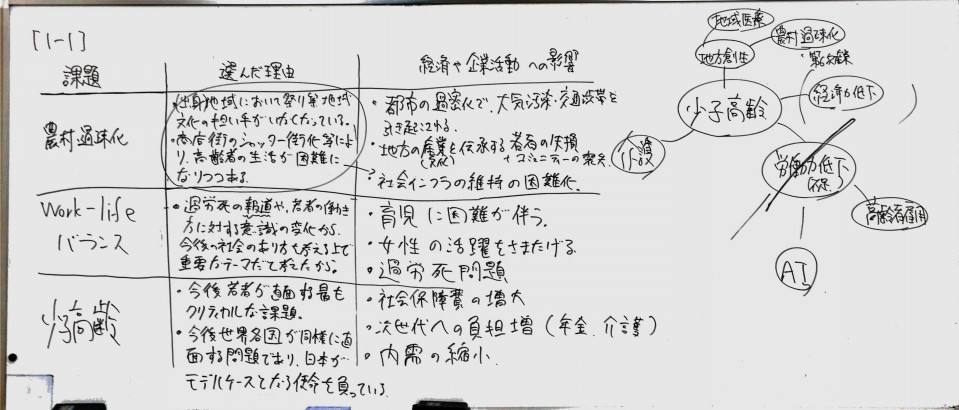 [1-1]
課題
選んだ理由
経済や企業活動への影響
農村過疎化
・出身地域において祭り等地域
文化の担い手がいなくなっている。
・商店街のシャッター街化等によ
り、高齢者の生活が困難に
なりつつある。
・都市の過密化で、大気汚染・交通渋滞を
引き起こされる。
・地方の産業を伝承する若者の失損
(文化)
+コミュニティーの衰え
・社会インフラの維持の困難化。
Work-life
バランス
・過労死の報道や、若者の働き
方に対する意識の変化から、
今後の社会のあり方を考える上で
重要なテーマだと考えたから。
・育児に困難が伴う。
・女性の活躍をさまたげる。
・過労死問題
少子高齢
・今後若者が直面する最も
クリティカルな課題。
・今後世界各国が同様に直
面する問題であり、日本が
モデルケースとなる使命を負っている。
・社会保障費の増大
・次世代への負担増(年金、介護)
・内需の縮小
地域医療
農村過疎化
地方創生
少子高齢
経済力低下
介護
労働力低下
(不足)
高齢者雇用
AI